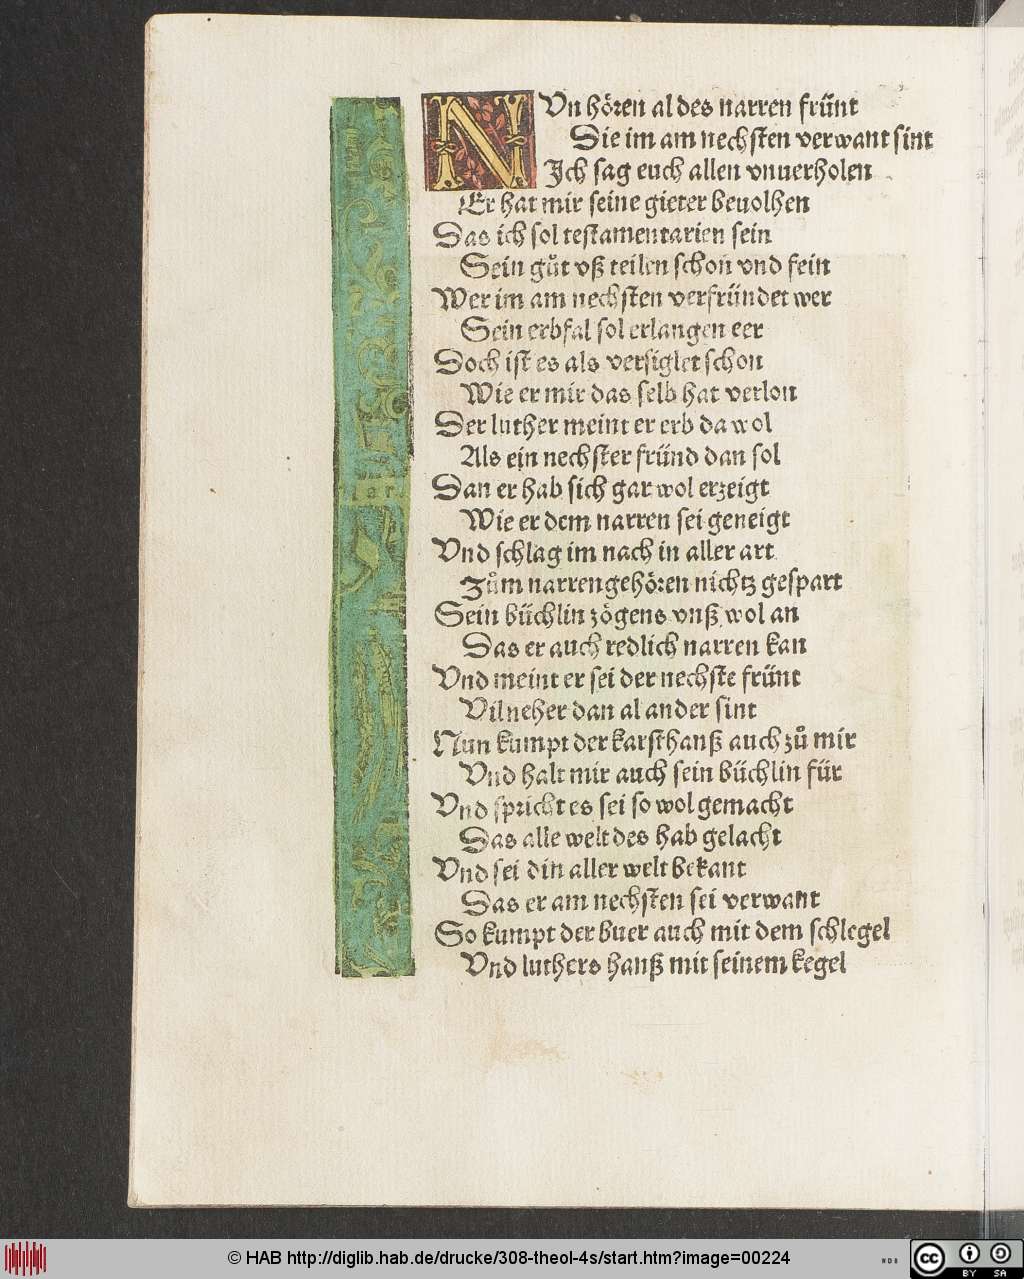 NVn hören al des narren frünt
Die im am nechsten verwant sint
Ich sag euch allen vnuerholen
Er hat mir seine gieter beuolhen
Das ich sol testamentarien sein
Sein gůt vß teilen schon vnd fein
Wer im am nechsten verfründet wer
Sein erbfal sol erlangen eer
Doch ist es als versiglet schon
Wie er mir das selb hat verlon
Der luther meint er erb da wol
Als ein nechster fründ dan sol
Dan er hab sich gar wol erzeigt
Wie er dem narren sei geneigt
Vnd schlag im nach in aller art
Zům narrengehören nichtz gespart
Sein büchlin zögens vnß wol an
Das er auch redlich narren kan
Vnd meint er sei der nechste frünt
Vil neher dan al ander sint
Nun kumpt der karsthanß auch zů mir
Vnd halt mir auch sein büchlin für
Vnd spricht es sei so wol gemacht
Das alle welt des hab gelacht
Vnd sei din aller welt bekant
Das er am nechsten sei verwant
So kumpt der buer auch mit dem schlegel
Vnd luthers hanß mit seinem kegel
© HAB http://diglib.hab.de/drucke/308-theol-4s/start.htm?image=00224
WDB
cc BY SA